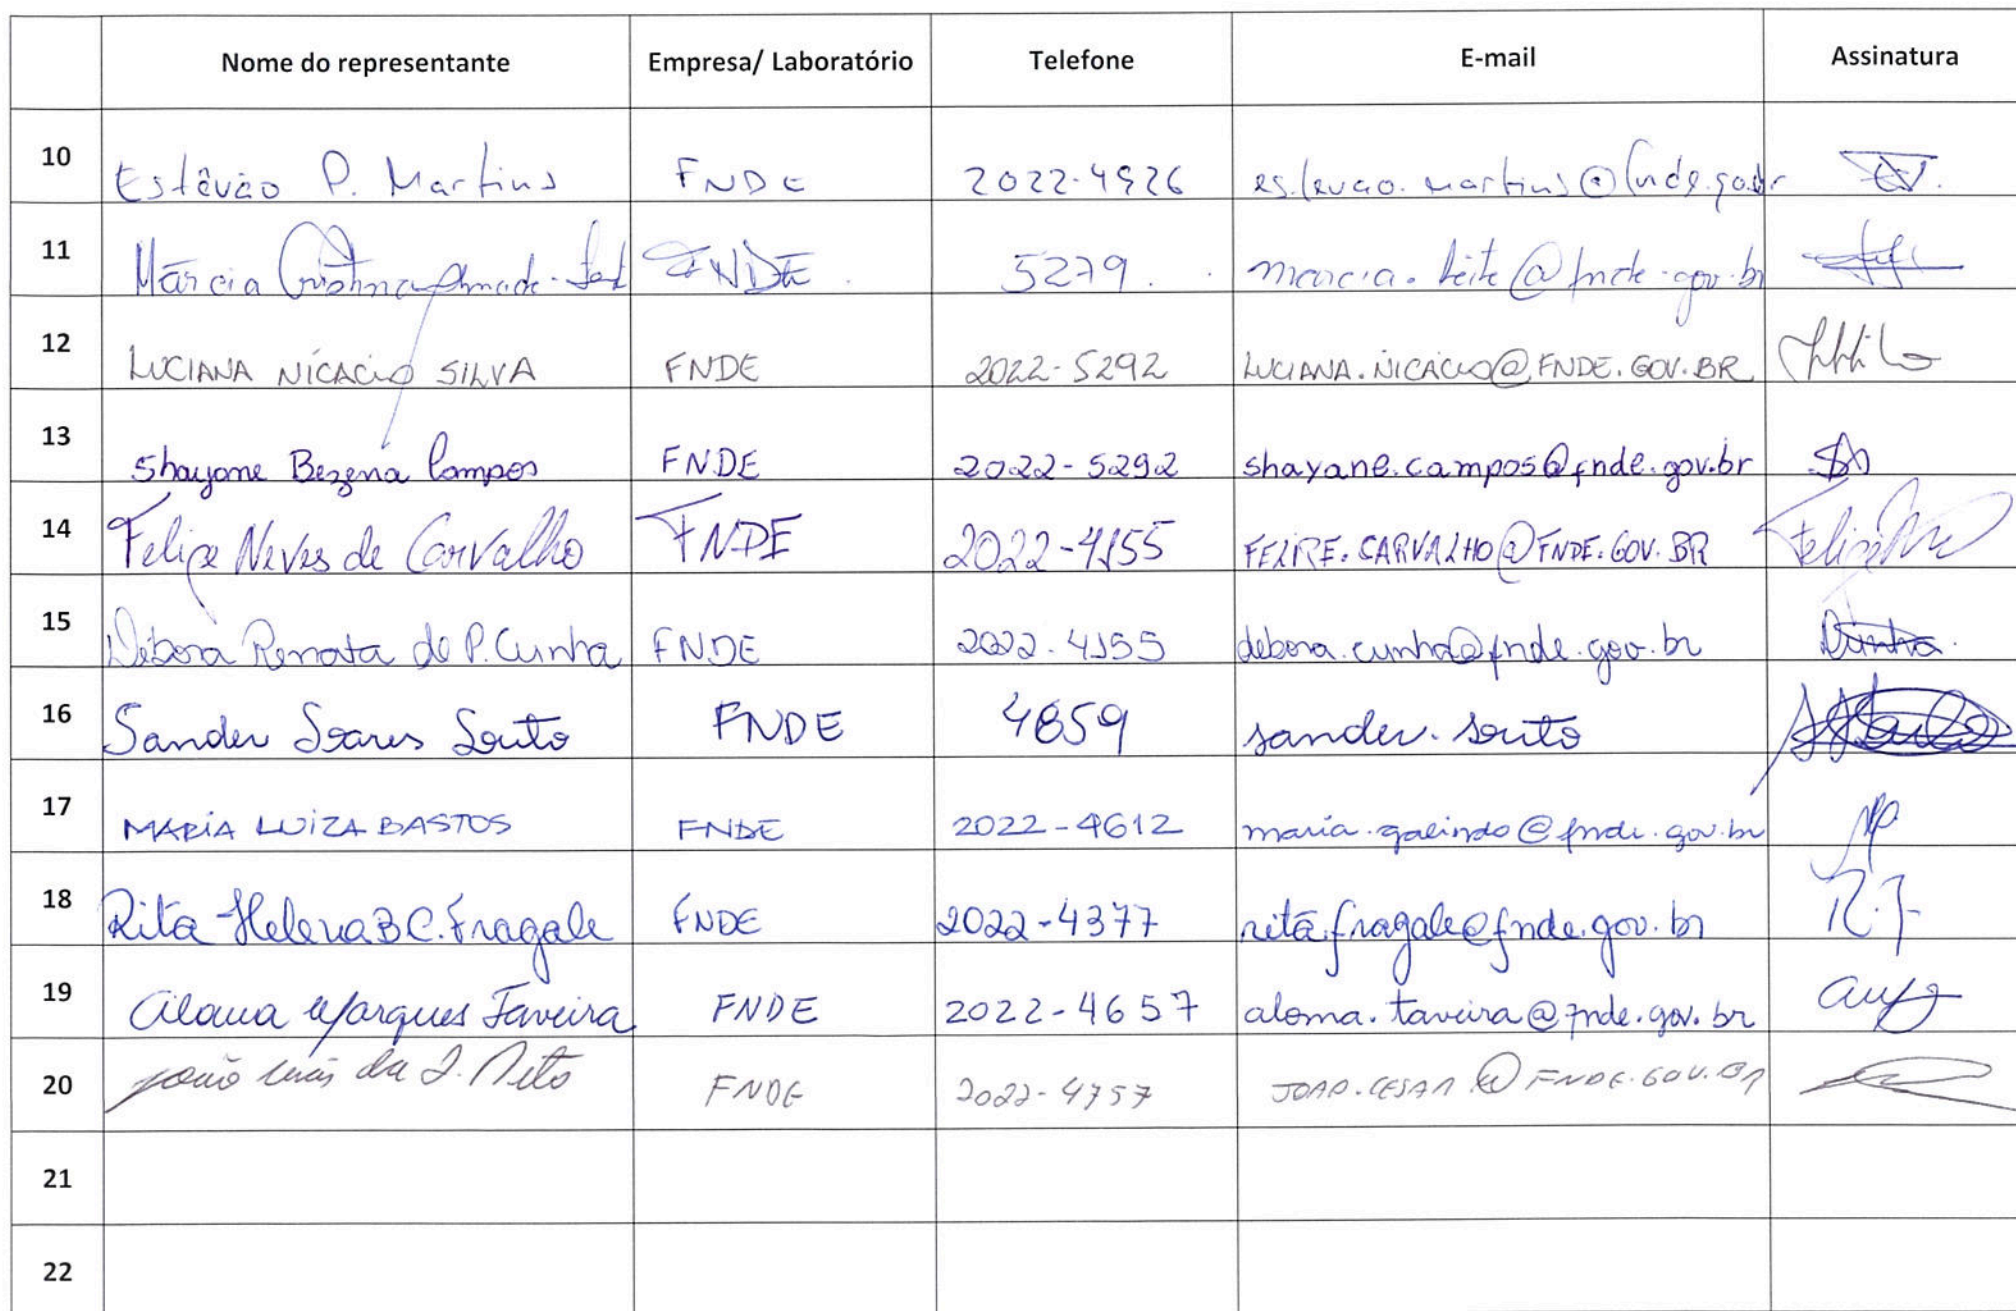 Nome do representante Empresa/ Laboratório Telefone E-mail Assinatura
10 Estêvão P. Martins FNDE 2022-4926 estevao.martins@fnde.gov.br
11 Márcia Cristina FNDE. 5279. marcia.leite@fnde.gov.br
12 LUCIANA NÍCACIO SILVA FNDE 2022-5292 LUCIANA.NICÁCIO@FNDE.GOV.BR
13 Shayane Bezerra Campos FNDE 2022-5292 shayane.campos@fnde.gov.br
14 Felipe Neves de Carvalho FNDE 2022-4155 FELIPE.CARVALHO@FNDE.GOV.BR Felipe
15 Débora Renata de P. Cunha FNDE 2022-4155 debora.cunha@fnde.gov.br Cunha.
16 Sander Soares Souto FNDE 4859 sander.souto
17 MARIA LUIZA BASTOS FNDE 2022-4612 maria.galindo@fnde.gov.br
18 Rita Helena B C. Fragale FNDE 2022-4377 rita.fragale@fnde.gov.br R.F
19 Aloma Marques Taveira FNDE 2022-4657 aloma.taveira@fnde.gov.br
20 João FNDE 2022-4757 JOAO.CESAR@FNDE.GOV.BR
21
22